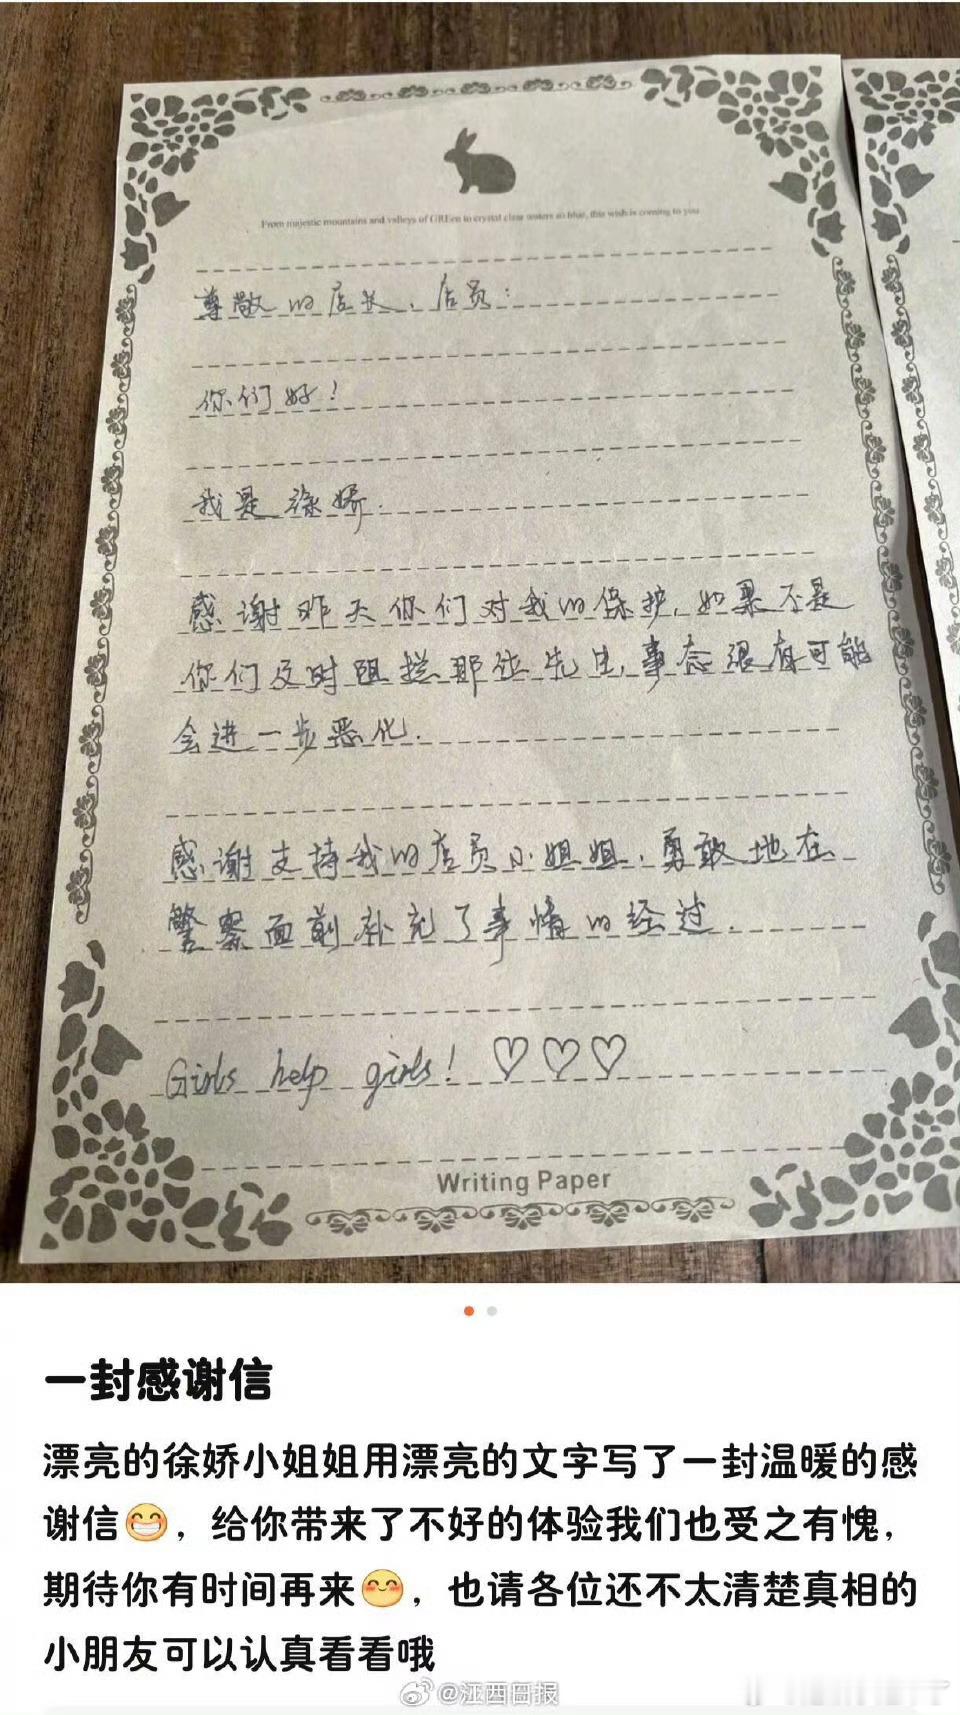 From majestic mountains and valleys of GREen to crystal clear waters so blue, this wish is coming to you
尊敬的店长、店员：
你们好！
我是徐娇.
感谢昨天你们对我的保护,如果不是
你们及时阻拦那位先生,事态很有可能
会进一步恶化.
感谢支持我的店员小姐姐,勇敢地在
警察面前补充了事情的经过.
Girls help girls! ♡♡♡
Writing Paper
一封感谢信
漂亮的徐娇小姐姐用漂亮的文字写了一封温暖的感
谢信😁，给你带来了不好的体验我们也受之有愧，
期待你有时间再来😊，也请各位还不太清楚真相的
小朋友可以认真看看哦
@江西日报